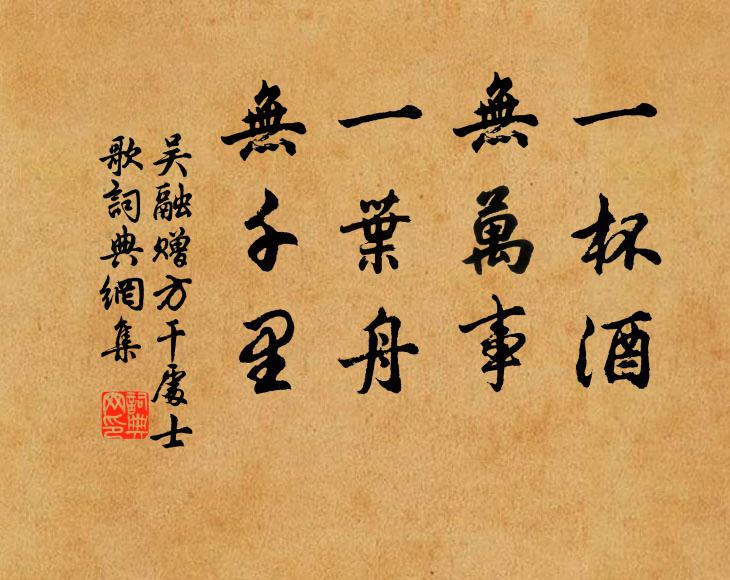 一杯酒
無萬事
一葉舟
無千里
吴融赠方干處士
歌詞典網集
詞典
网印